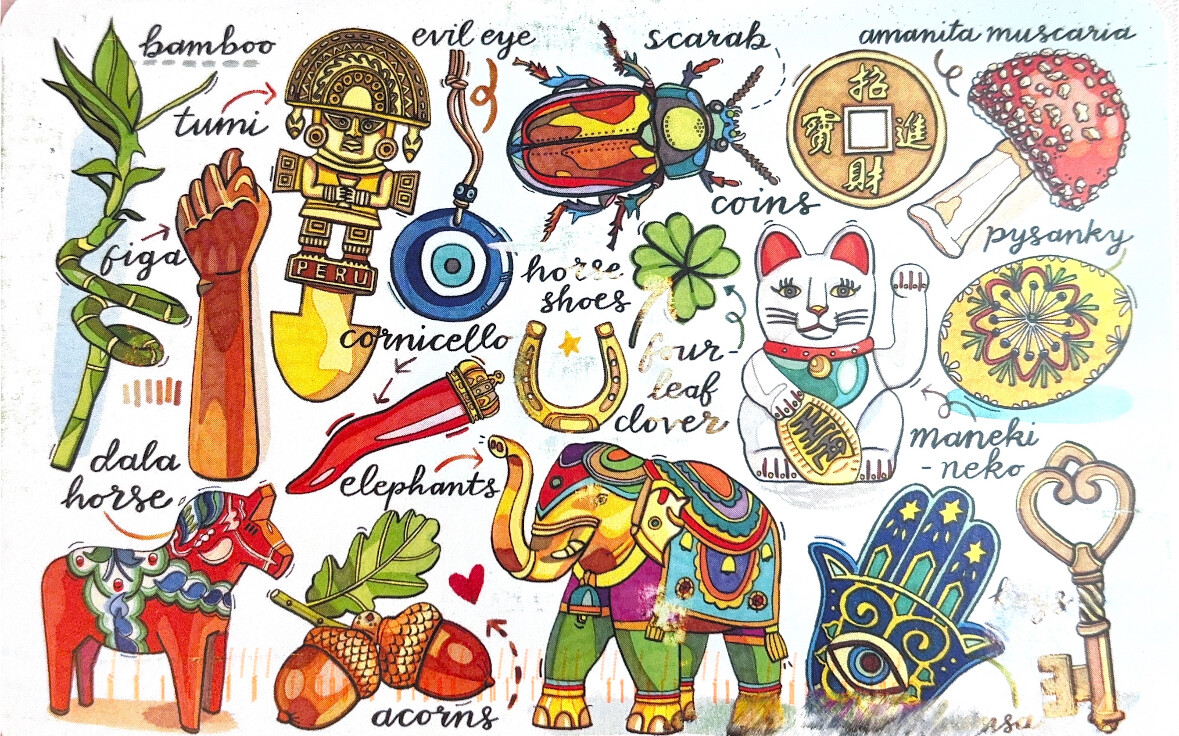 bamboo
evil eye
scarab
amanita muscaria
tumi
招
寶 進
財
coins
figa
PERU
horse
shoes
pysanky
cornicello
four-
leaf
clover
maneki
-neko
dala
horse
elephants
keys
acorns